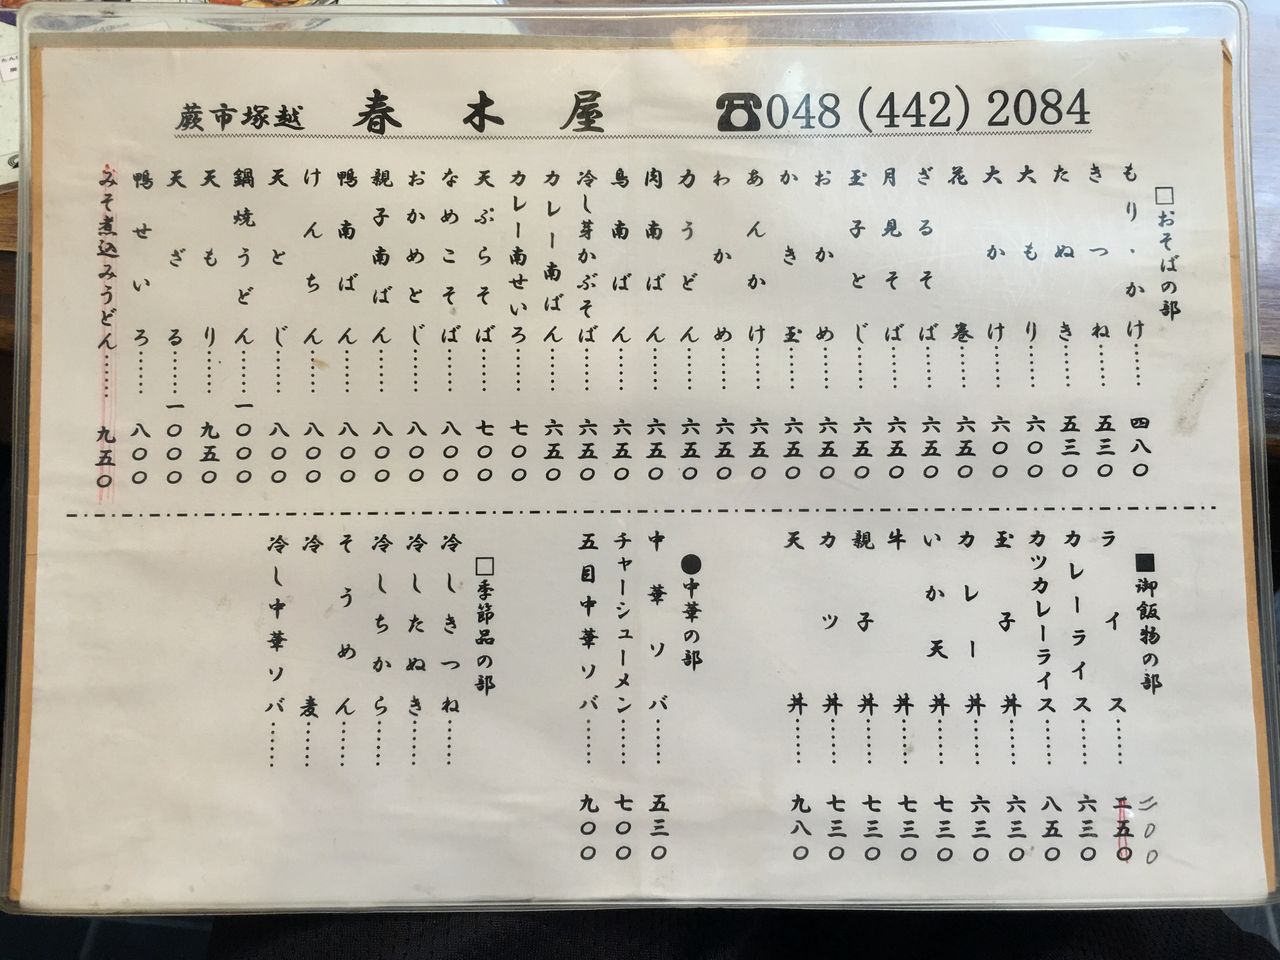 蕨市塚越 春木屋 ☎048(442)2084
□おそばの部
もり・かけ……四八〇
きつね……五三〇
たぬき……五三〇
大もり……六〇〇
大かけ……六〇〇
花巻……六五〇
ざるそば……六五〇
月見そば……六五〇
玉子とじ……六五〇
おかめ……六五〇
かき玉……六五〇
あんかけ……六五〇
わかめ……六五〇
力うどん……六五〇
肉南ばん……六五〇
鳥南ばん……六五〇
冷し芽かぶそば……六五〇
カレー南ばん……六五〇
カレー南せいろ……七〇〇
天ぷらそば……七〇〇
なめこそば……八〇〇
おかめとじ……八〇〇
親子南ばん……八〇〇
鴨南ばん……八〇〇
けんちん……八〇〇
天とじ……八〇〇
鍋焼うどん……一〇〇〇
天もり……九五〇
天ざる……一〇〇〇
鴨せいろ……八〇〇
みそ煮込みうどん……九五〇
■御飯物の部
二〇〇
ライス……二五〇
カレーライス……六三〇
カツカレーライス……八五〇
玉子丼……六三〇
カレー丼……六三〇
いか天丼……七三〇
牛丼……七三〇
親子丼……七三〇
カツ丼……七三〇
天丼……九八〇
●中華の部
中華ソバ……五三〇
チャーシューメン……七〇〇
五目中華ソバ……九〇〇
□季節品の部
冷しきつね……
冷したぬき……
冷しちから……
そうめん……
冷麦……
冷し中華ソバ……